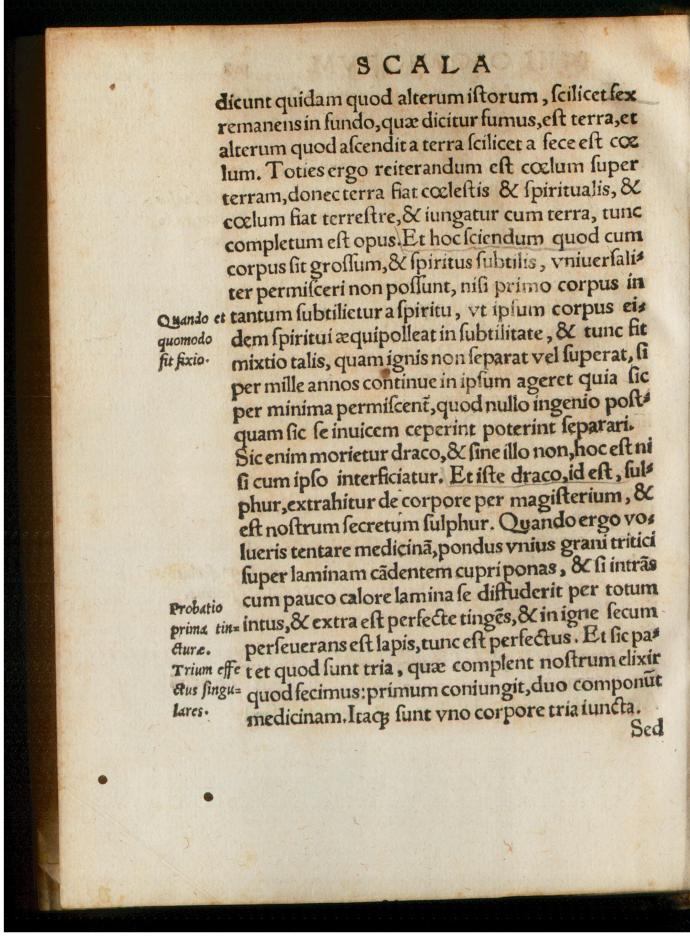 SCALA
dicunt quidam quod alterum iſtorum, ſcilicet fex
remanens in fundo, quæ dicitur fumus, eſt terra, et
alterum quod aſcendit a terra ſcilicet a fece eſt cœ
lum. Toties ergo reiterandum eſt cœlum ſuper
terram, donec terra fiat cœleſtis & ſpiritualis, &
cœlum fiat terreſtre, & iungatur cum terra, tunc
completum eſt opus. Et hoc ſciendum quod cum
corpus ſit groſſum, & ſpiritus ſubtilis, vniuerſali⸗
ter permiſceri non poſſunt, niſi primo corpus in
tantum ſubtilietur a ſpiritu, vt ipſum corpus ei⸗
dem ſpiritui æquipolleat in ſubtilitate, & tunc fit
mixtio talis, quam ignis non ſeparat vel ſuperat, ſi
per mille annos continue in ipſum ageret quia ſic
per minima permiſcent̃, quod nullo ingenio poſt⸗
quam ſic ſe inuicem ceperint poterint ſeparari.
Sic enim morietur draco, & ſine illo non, hoc eſt ni
ſi cum ipſo interficiatur. Et iſte draco, id eſt, ſul⸗
phur, extrahitur de corpore per magiſterium, &
eſt noſtrum ſecretum ſulphur. Quando ergo vo⸗
lueris tentare medicinã, pondus vnius grani tritici
ſuper laminam cãdentem cupri ponas, & ſi intrãs
cum pauco calore lamina ſe diffuderit per totum
intus, & extra eſt perfecte tingẽs, & in igne ſecum
perſeuerans eſt lapis, tunc eſt perfectus. Et ſic pa⸗
tet quod ſunt tria, quæ complent noſtrum elixir
quod fecimus: primum coniungit, duo componũt
medicinam. Itaqꝫ ſunt vno corpore tria iuncta.
Sed
Quando et
quomodo
fit fixio.
Probatio
primæ tin⸗
cturæ.
Trium effe
ctus ſingu⸗
lares.